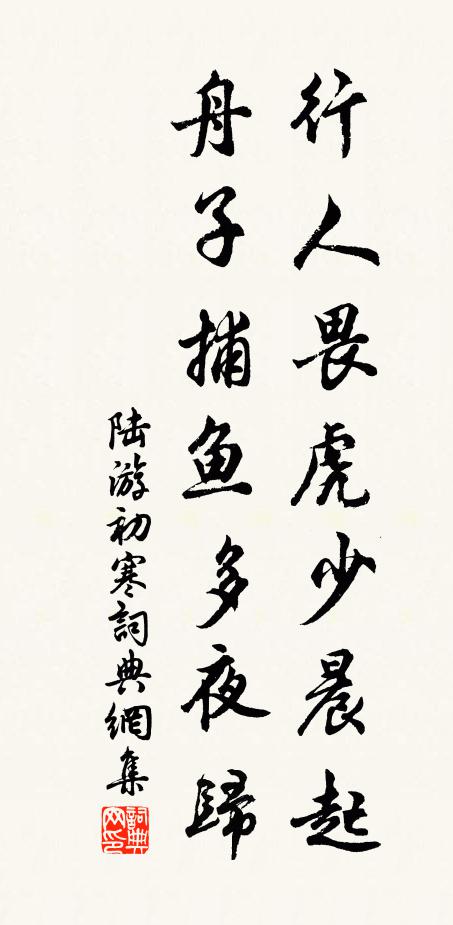 行人畏虎少晨起
舟子捕鱼多夜歸
陆游初寒詞典網集
詞典网印